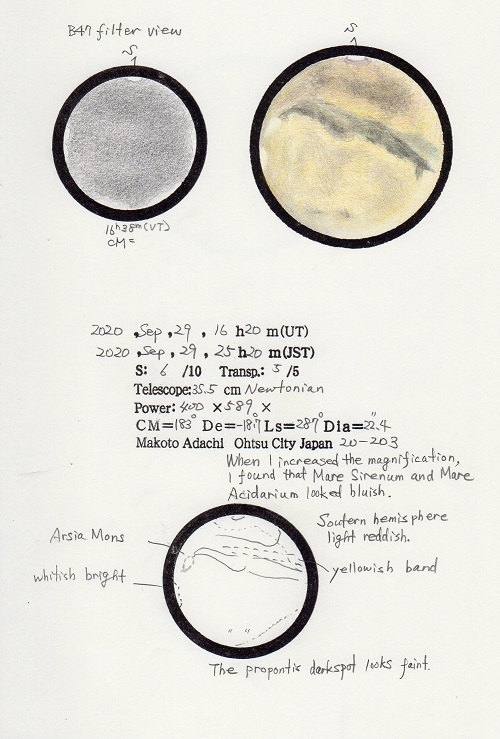 B47 filter view
S
S
16h38m(UT)
CM=
2020 ,Sep ,29 , 16 h20 m(UT)
2020 ,Sep ,29 , 25 h20 m(JST)
S: 6 /10 Transp.: 5 /5
Telescope:35.5 cm Newtonian
Power: 400 × 589 ×
CM=183° De=-18.7° Ls=287° Dia=22.4"
Makoto Adachi Ohtsu City Japan 20-203
When I increased the magnification,
I found that Mare Sirenum and Mare
Acidarium looked bluish.
Soutern hemisphere
light reddish.
Arsia Mons
yellowish band
whitish bright
The propontis darkspot looks faint.